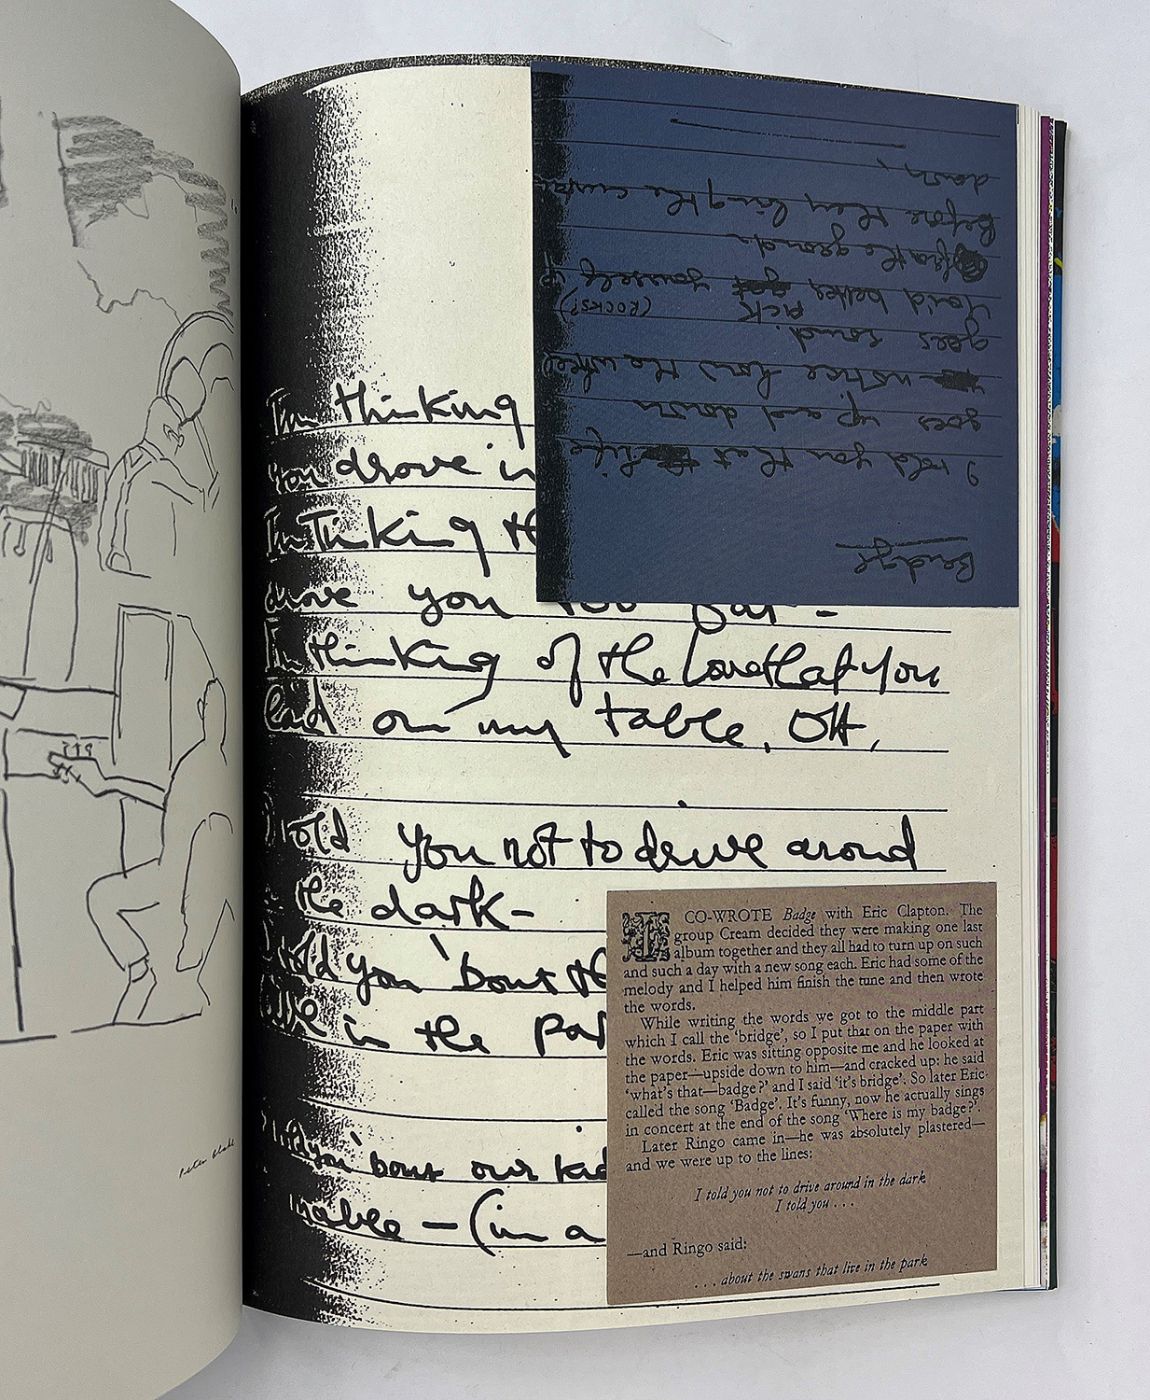 I'm thinking
You drove in
I'm Thinking th
drove you too far -
I'm thinking of the love that you
laid on my table. OH,
I told you not to drive around
in the dark -
I told you 'bout th
live in the par
told you 'bout our kid
mable - (in a
Bridge
I told you that life
goes up and down
notice how the wheel
goes round.
PICK (ROCKS?)
You'd better get yourself
from the ground
Before they bring the curtain
down
I CO-WROTE Badge with Eric Clapton. The
group Cream decided they were making one last
album together and they all had to turn up on such
and such a day with a new song each. Eric had some of the
melody and I helped him finish the tune and then wrote
the words.
While writing the words we got to the middle part
which I call the ‘bridge’, so I put that on the paper with
the words. Eric was sitting opposite me and he looked at
the paper—upside down to him—and cracked up: he said
‘what’s that—badge?’ and I said ‘it’s bridge’. So later Eric
called the song ‘Badge’. It’s funny, now he actually sings
in concert at the end of the song ‘Where is my badge?’.
Later Ringo came in—he was absolutely plastered—
and we were up to the lines:
I told you not to drive around in the dark
I told you . . .
—and Ringo said:
. . . about the swans that live in the park